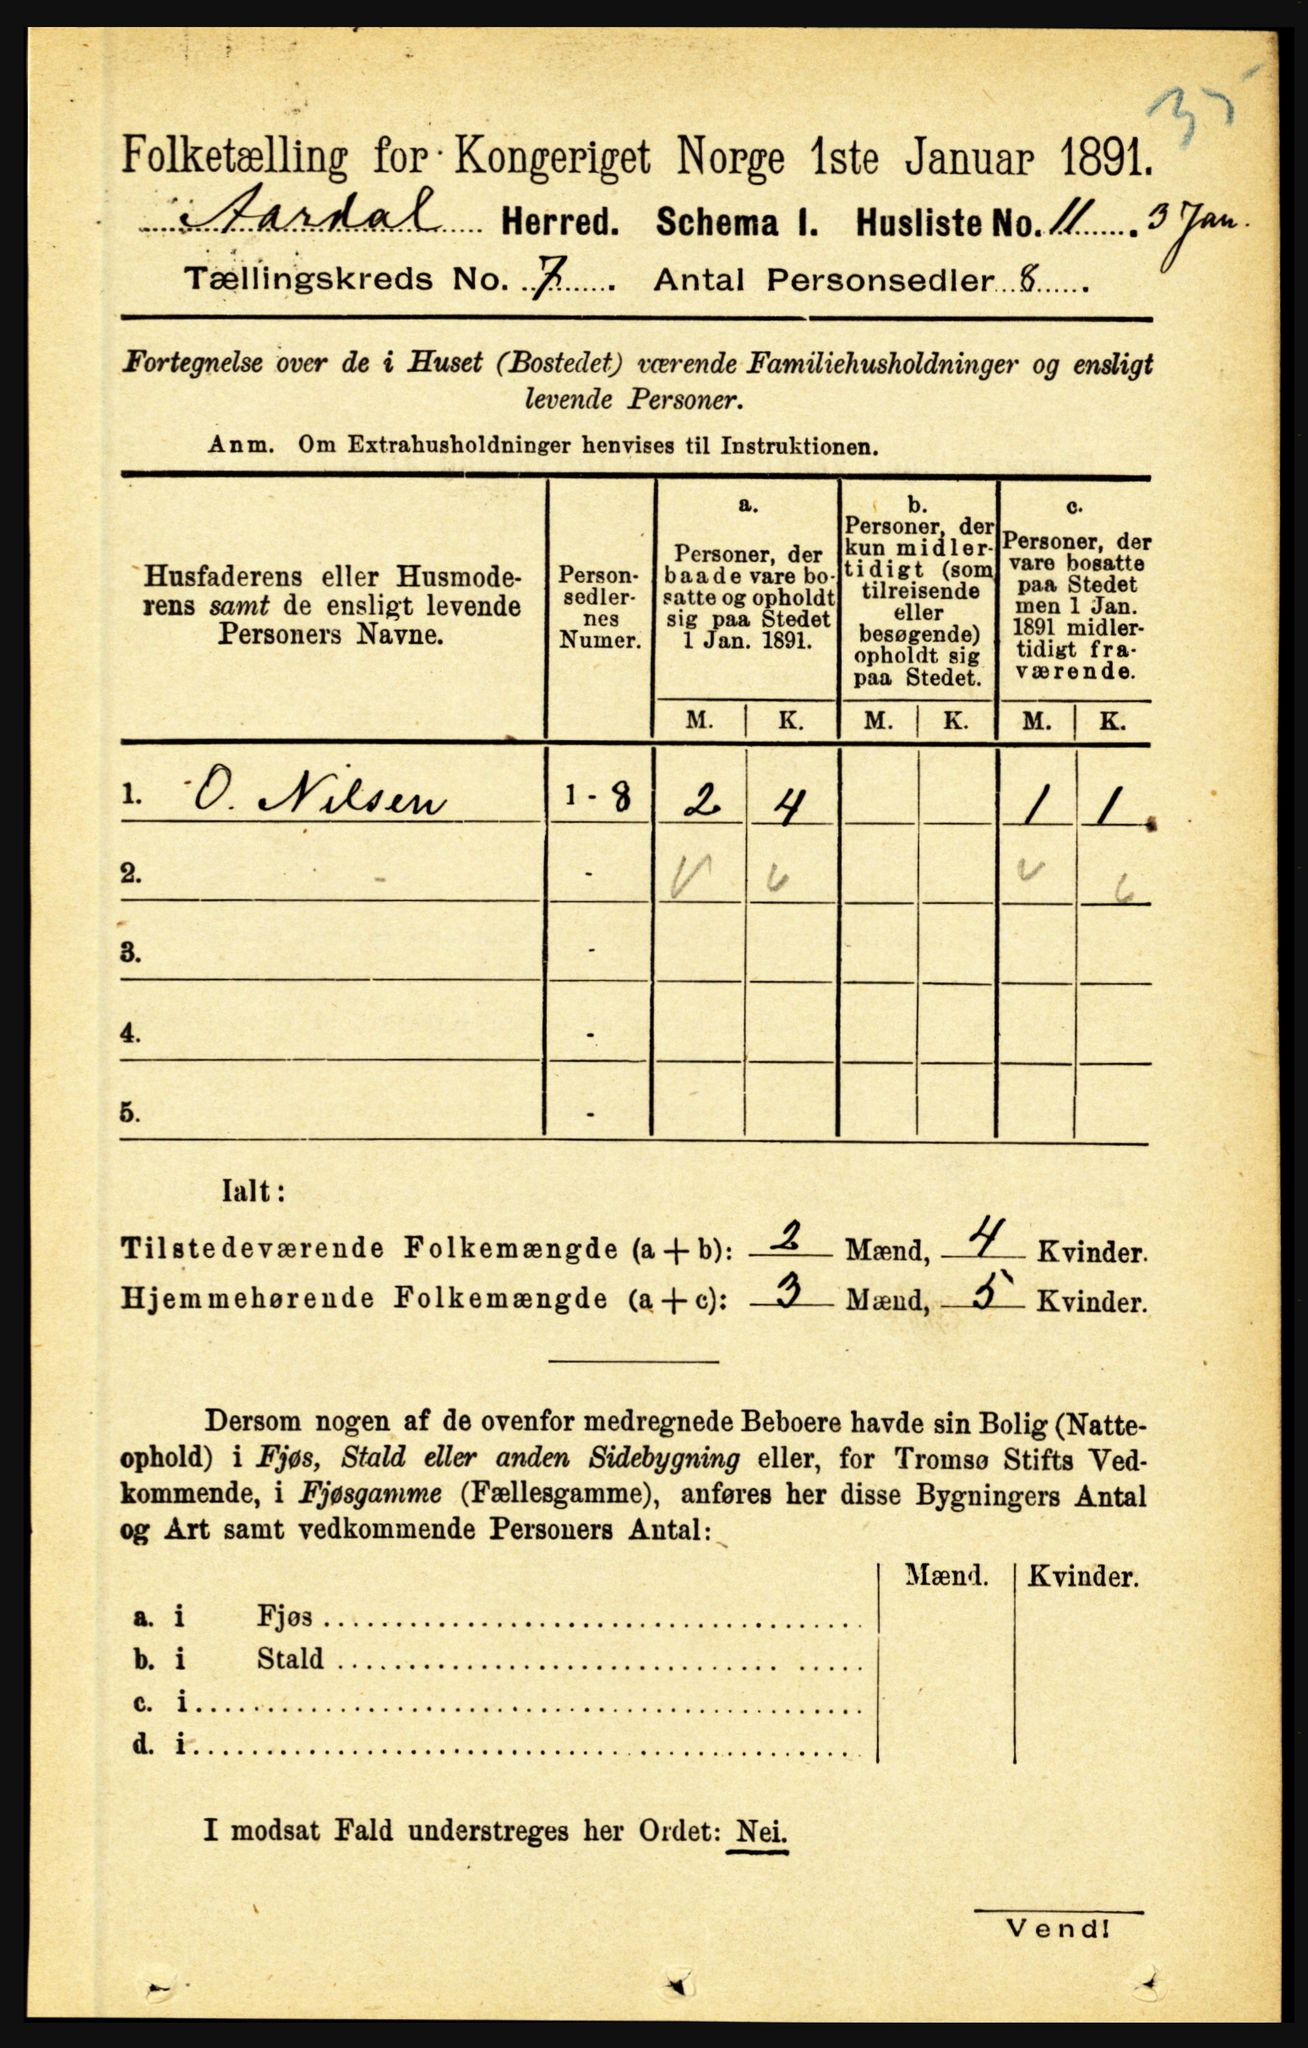 35
Folketælling for Kongeriget Norge 1ste Januar 1891.
Aardal Herred. Schema I. Husliste No. 11. 3 Jan.
Tællingskreds No. 7. Antal Personsedler 8.
Fortegnelse over de i Huset (Bostedet) værende Familiehusholdninger og ensligt
levende Personer.
Anm. Om Extrahusholdninger henvises til Instruktionen.
Husfaderens eller Husmode-
rens samt de ensligt levende
Personers Navne.
Person-
sedler-
nes
Numer.
a.
Personer, der
baade vare bo-
satte og opholdt
sig paa Stedet
1 Jan. 1891.
b.
Personer, der
kun midler-
tidigt (som
tilreisende
eller
besøgende)
opholdt sig
paa Stedet.
c.
Personer, der
vare bosatte
paa Stedet
men 1 Jan.
1891 midler-
tidigt fra-
værende.
M. K. M. K. M. K.
1. O. Nilsen 1 - 8 2 4 1 1
2. -
3. -
4. -
5. -
Ialt:
Tilstedeværende Folkemængde (a + b): 2 Mænd, 4 Kvinder.
Hjemmehørende Folkemængde (a + c): 3 Mænd, 5 Kvinder.
Dersom nogen af de ovenfor medregnede Beboere havde sin Bolig (Natte-
ophold) i Fjøs, Stald eller anden Sidebygning eller, for Tromsø Stifts Ved-
kommende, i Fjøsgamme (Fællesgamme), anføres her disse Bygningers Antal
og Art samt vedkommende Personers Antal:
Mænd. Kvinder.
a. i Fjøs
b. i Stald
c. i
d. i
I modsat Fald understreges her Ordet: Nei.
Vend!